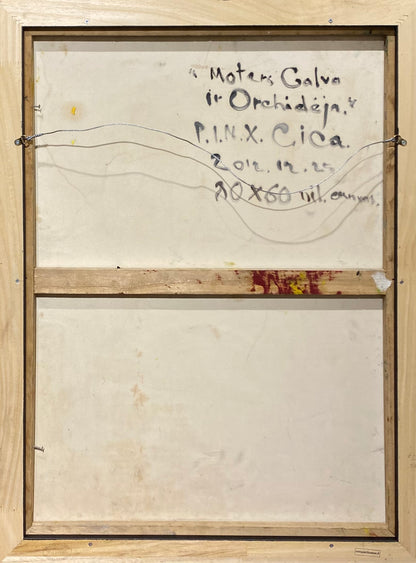 "Moters Galva
ir Orchidėja."
P.I.N.X. Cica.
2012.12.25
80x60 oil. canvas.